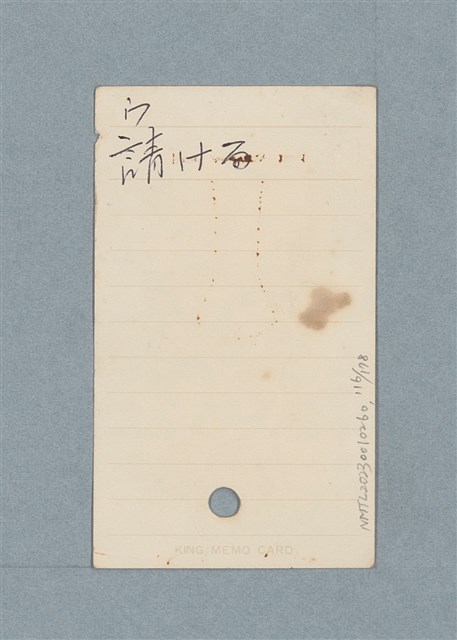 ウ
請ける
KING MEMO CARD
NMTL20230010260, 116/178